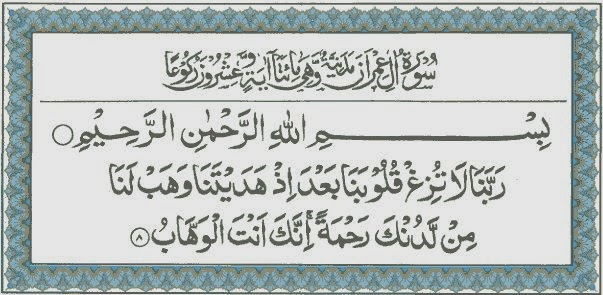 سُوْرَةُ اٰلِ عِمْرٰنَ مَدَنِيَّةٌ وَّهِيَ مِائَتَا اٰيَةٍ وَّعِشْرُوْنَ رُكُوْعًا
بِسْمِ اللّٰهِ الرَّحْمٰنِ الرَّحِيْمِ ○
رَبَّنَا لَا تُزِغْ قُلُوْبَنَا بَعْدَ اِذْ هَدَيْتَنَا وَهَبْ لَنَا
مِنْ لَّدُنْكَ رَحْمَةً ۚ اِنَّكَ اَنْتَ الْوَهَّابُ ۝٨